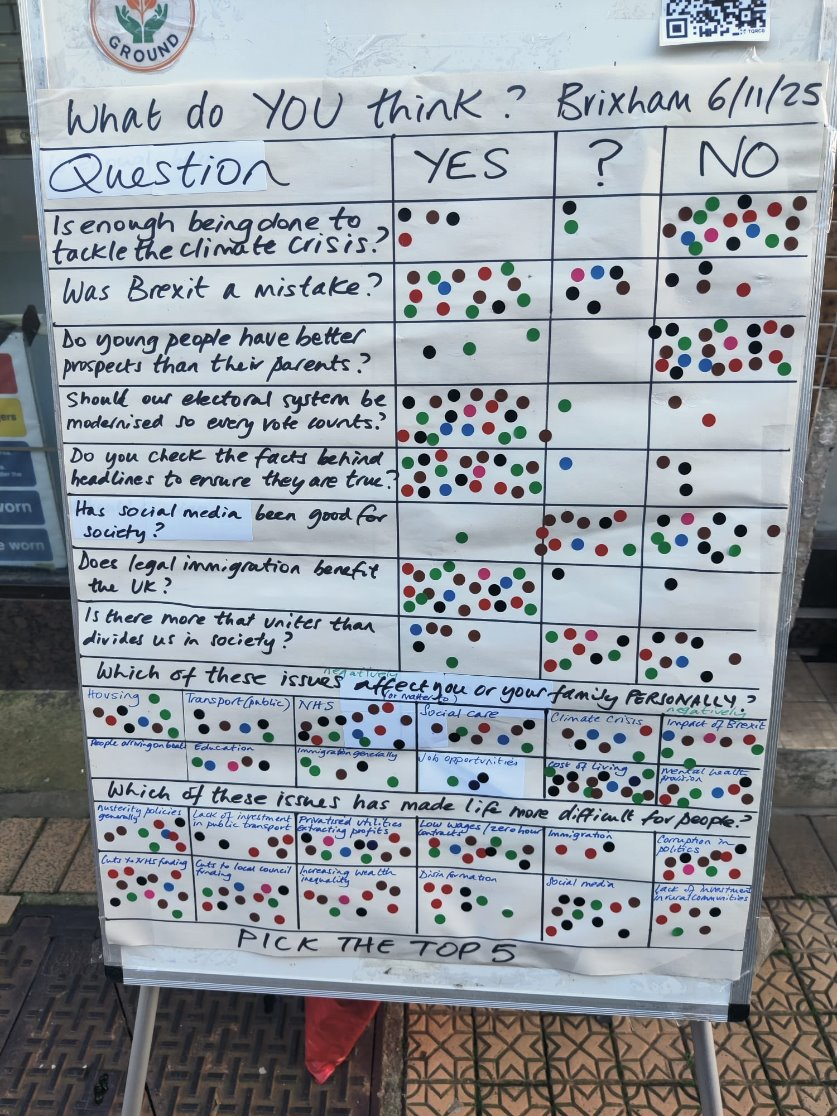 GROUND
What do YOU think? Brixham 6/11/25
Question YES ? NO
Is enough being done to
tackle the climate crisis?
Was Brexit a mistake?
Do young people have better
prospects than their parents?
Should our electoral system be
modernised so every vote counts?
Do you check the facts behind
headlines to ensure they are true?
Has social media been good for
society?
Does legal immigration benefit
the UK?
Is there more that unites than
divides us in society?
negatively
Which of these issues affect you or your family PERSONALLY?
(or matter to)
Housing
Transport (public)
NHS
Social care
Climate Crisis
negatively
Impact of Brexit
People arriving on boats
Education
Immigration generally
Job opportunities
Cost of living
Mental health
provision
Which of these issues has made life more difficult for people?
Austerity policies
generally
Lack of investment
in public transport
Privatised utilities
extracting profits
Low wages/zero hour
contracts
Immigration
Corruption in
politics
Cuts to NHS funding
Cuts to local council
funding
Increasing wealth
inequality
Disinformation
Social media
Lack of investment
in rural communities
PICK THE TOP 5
worn
e worn